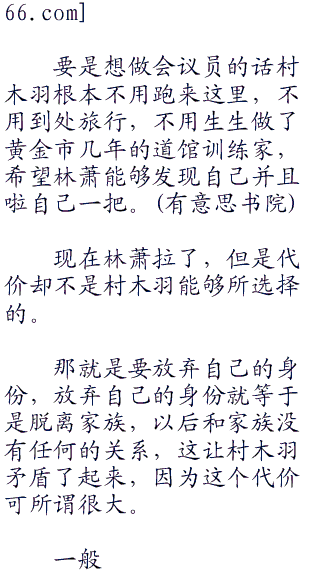 66.com]
要是想做会议员的话村
木羽根本不用跑来这里，不
用到处旅行，不用生生做了
黄金市几年的道馆训练家，
希望林萧能够发现自己并且
啦自己一把。(有意思书院)
现在林萧拉了，但是代
价却不是村木羽能够所选择
的。
那就是要放弃自己的身
份，放弃自己的身份就等于
是脱离家族，以后和家族没
有任何的关系，这让村木羽
矛盾了起来，因为这个代价
可所谓很大。
一般